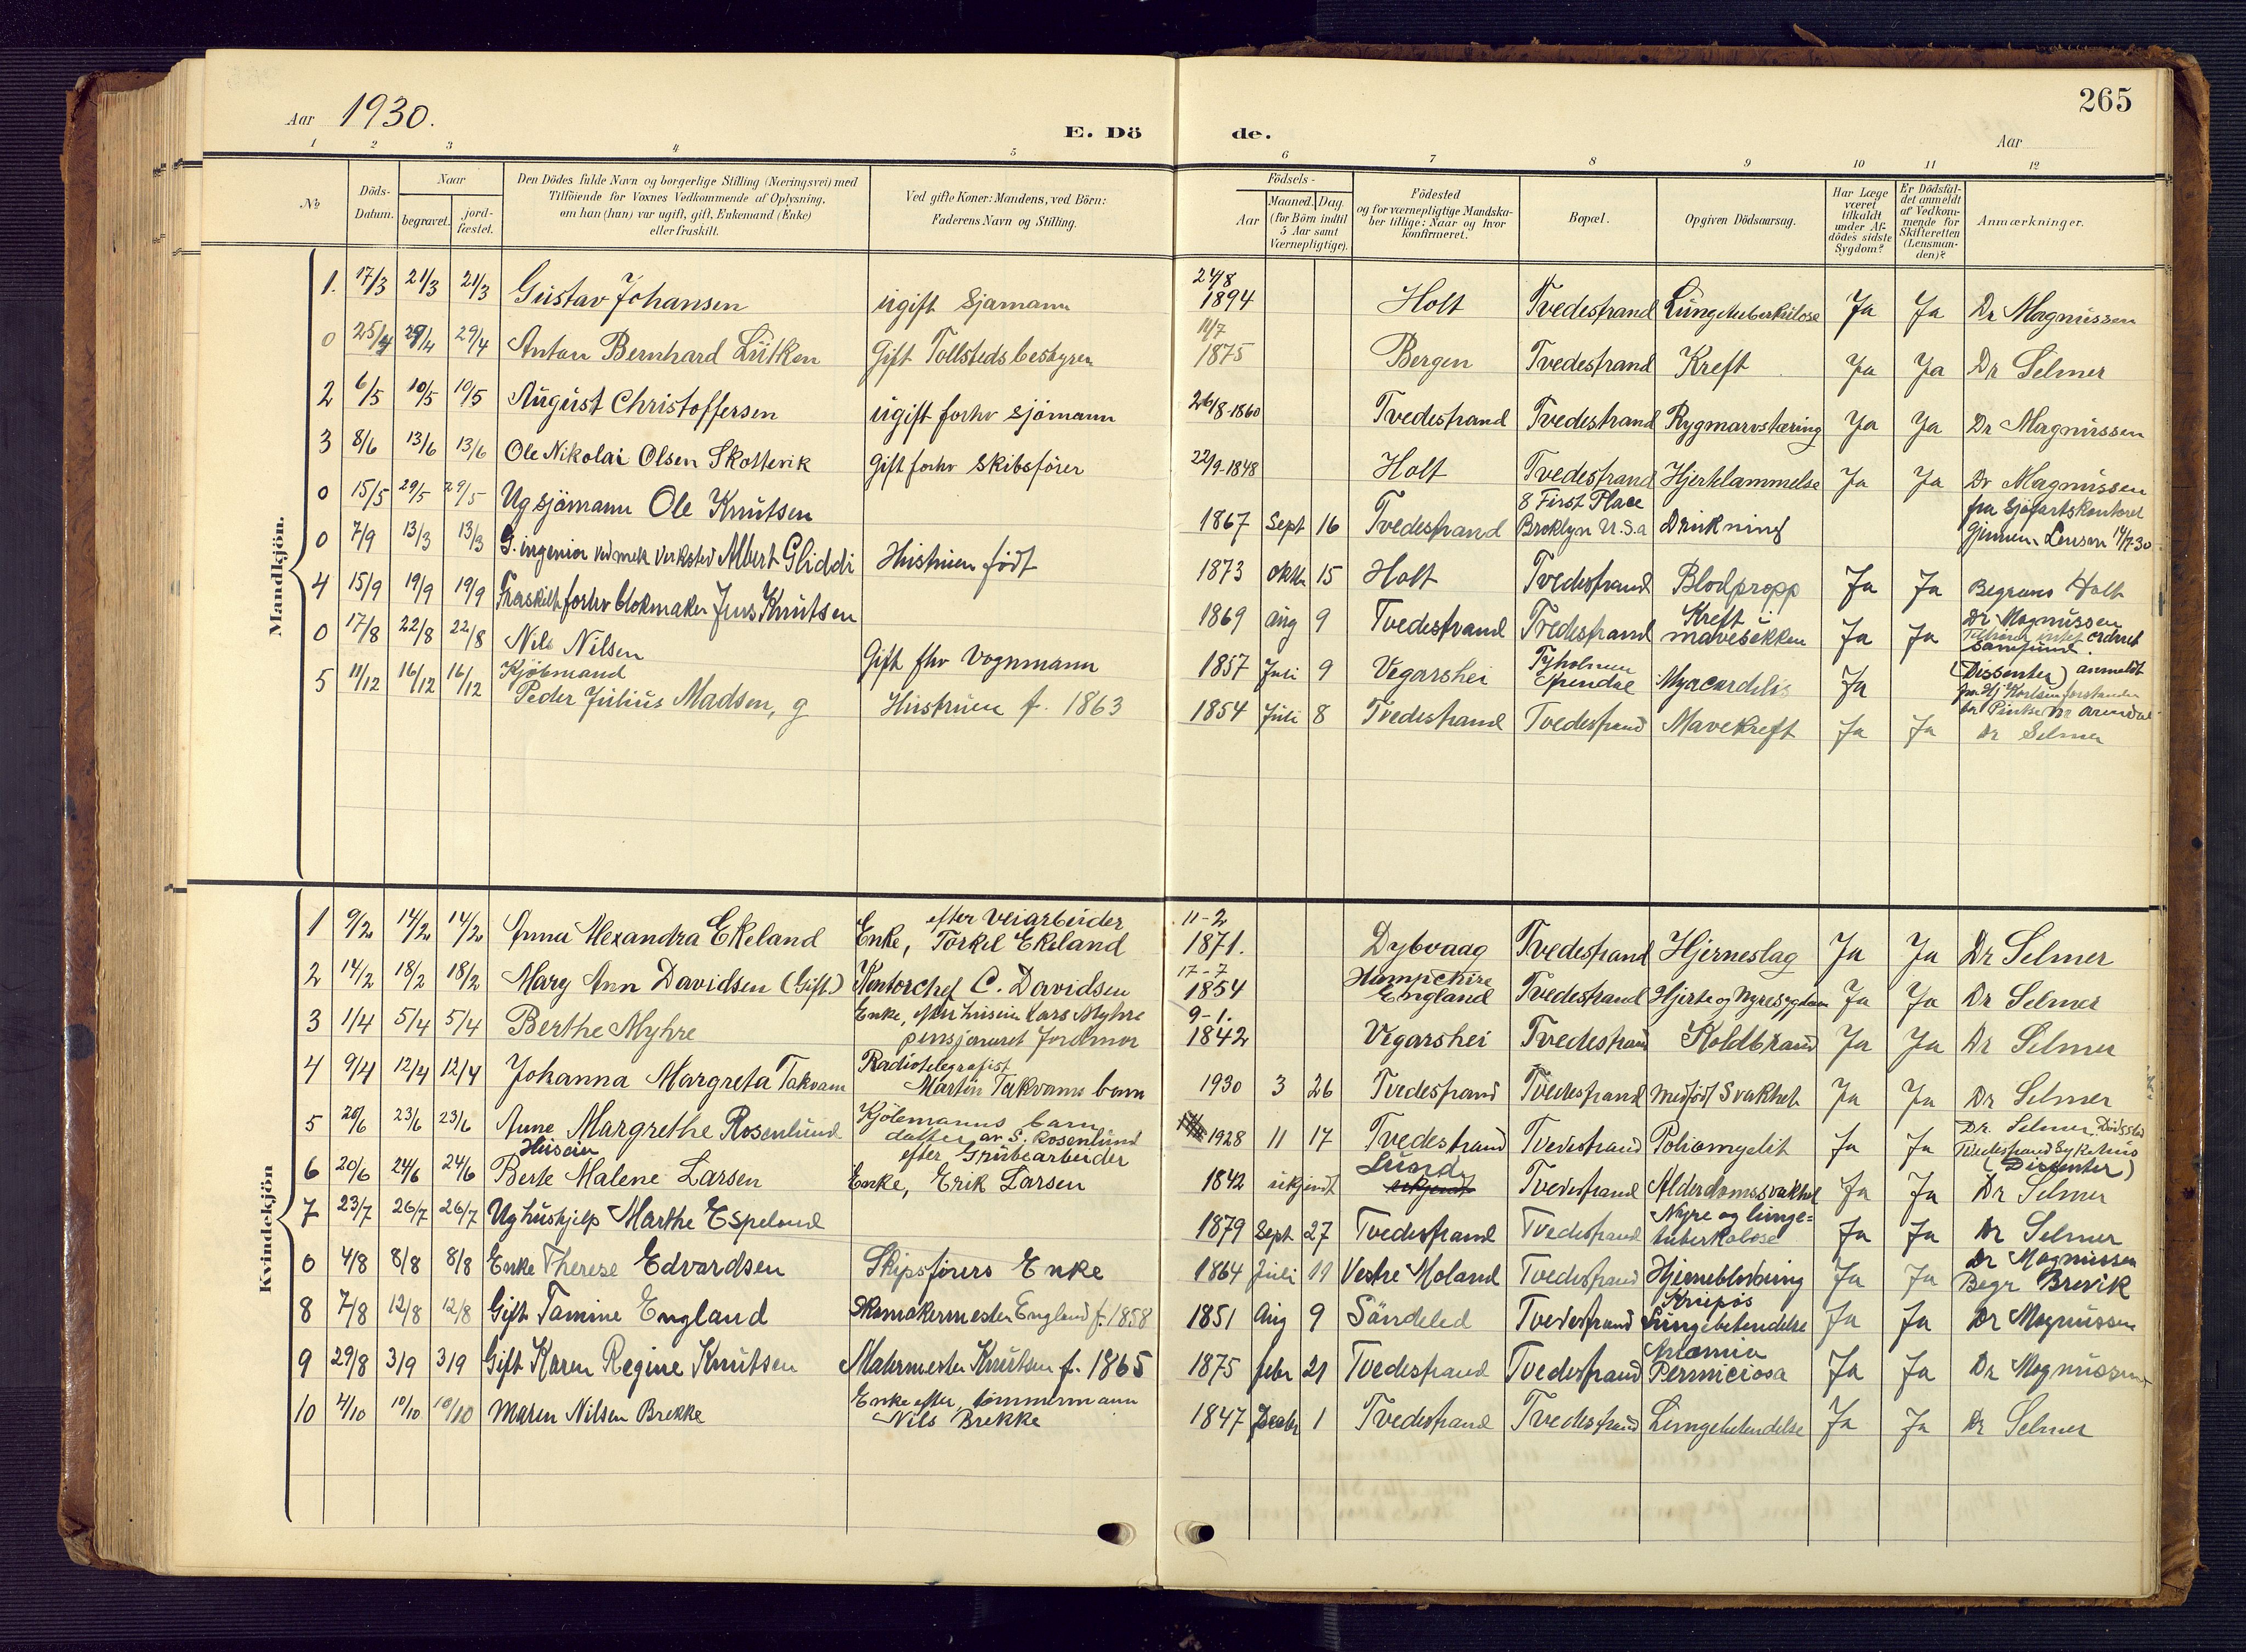 265
Aar 1930.
E. Dö de.
Aar
1 2 3 4 5 6 7 8 9 10 11 12
No
Döds-Datum.
Naar
begravet.
jord-fæstet.
Den Dödes fulde Navn og borgerlige Stilling (Næringsvei) med
Tilföiende for Voxnes Vedkommende af Oplysning,
om han (hun) var ugift, gift, Enkemand (Enke)
eller fraskilt.
Ved gifte Koner: Mandens, ved Börn:
Faderens Navn og Stilling.
Födsels-
Aar
Maaned. Dag.
(for Börn indtil 5 Aar samt Værnepligtige).
Födested
og for værnepligtige Mandska-
ber tillige: Naar og hvor
konfirmeret.
Bopæl.
Opgiven Dödsaarsag.
Har Læge været tilkaldt under Af-dödes sidste Sygdom?
Er Dödsfal-det anmeldt af Vedkom-mende for Skifteretten (Lensman-den)?
Anmærkninger.
Mandkjön.
1. 17/3 21/3 21/3 Gustav Johansen ugift Sjømann 24/8 1894 Holt Tvedestrand Lungetuberkulose Ja Ja Dr Magnussen
0 25/4 29/4 29/4 Anton Bernhard Lütken Gift Tollstedsbestyrer 11/7 1875 Bergen Tvedestrand Kreft Ja Ja Dr Selmer
2 6/5 10/5 10/5 August Christoffersen ugift forhv sjömann 26/8-1860 Tvedestrand Tvedestrand Rygmarvstæring Ja Ja Dr Magnussen
3 8/6 13/6 13/6 Ole Nikolai Olsen Skottevik Gift forhv Skibsförer 22/9-1848 Holt Tvedestrand Hjertelammelse Ja Ja Dr Magnussen
0 15/5 29/5 29/5 Ug sjömann Ole Knutsen 1867 Sept 16 Tvedestrand 8 First Place Broklyn U.S.a Drukning fra Sjøfartskontoret 14/7-30
0 7/9 13/3 13/3 G. ingeniør ved mek verksted Albert Gliddi Hustruen födt 1873 oktb 15 Holt Tvedestrand Blodpropp Ja Ja Begraves Holt
4 15/9 19/9 19/9 Fraskilt forhv blokmaker Jens Knutsen 1869 aug 9 Tvedestrand Tvedestrand Kreft i mavesekken Ja Ja Dr Magnussen
0 17/8 22/8 22/8 Nils Nilsen Gift fhv Vognmann 1857 Juli 9 Vegarshei Tyholmen Myacardelis Ja (Dissenter) anmeldt
5 11/12 16/12 16/12 Kjöbmand Peder Julius Madsen, g Hustruen f. 1863 1854 Juli 8 Tvedestrand Tvedestrand Mavekreft Ja Ja Dr Selmer
Kvindekjön
1 9/2 14/2 14/2 Anna Alexandra Ekeland Enke, efter Veiarbeider Torkel Ekeland 11-2 1871. Dybvaag Tvedestrand Hjerneslag Ja Ja Dr Selmer
2 14/2 18/2 18/2 Mary Ann Davidsen (Gift) Kontorchef C. Davidsen 17-7 1854 Hampchire England Tvedestrand Hjerte og Nyresygdom Ja Ja Dr Selmer
3 1/4 5/4 5/4 Berthe Myhre Enke, efter Lars Myhre pensjoneret Jordmor 9-1. 1842 Vegarshei Tvedestrand Koldbrand Ja Ja Dr Selmer
4 9/4 12/4 12/4 Johanna Margreta Takvam Radiotelegrafist Martin Takvams barn 1930 3 26 Tvedestrand Tvedestrand Medfödt Svakhet Ja Ja Dr Selmer
5 20/6 23/6 23/6 Anne Margrethe Rosenlund Kjöbmanns barn datter av S. Rosenlund 1928 11 17 Tvedestrand Tvedestrand Poliomyelit Ja Ja Dr. Selmer Dödssted Tvedestrand Sykehus
6 20/6 24/6 24/6 Huseier Berte Malene Larsen Enke, efter Grubearbeider Erik Larsen 1842 ukjendt Lund ukjendt Tvedestrand Alderdomssvakhet Ja Ja (Dissenter) Dr Selmer
7 23/7 26/7 26/7 Ug hushjelp Marthe Espeland 1879 Sept 27 Tvedestrand Tvedestrand Nyre og lunge= tuberkolose Ja Ja Dr Selmer
0 4/8 8/8 8/8 Enke Therese Edvardsen Skipsförers Enke 1864 Juli 11 Vestre Moland Tvedestrand Hjerneblødning Ja Ja Dr Magnussen Begr Brevik
8 7/8 12/8 12/8 Gift Tamine England Skomakermester England f. 1858 1851 Aug 9 Söndeled Tvedestrand Krupøs Lungebetendelse Ja Ja Dr Magnussen
9 29/8 3/9 3/9 Gift Karen Regine Knutsen Malermester Knutsen f. 1865 1875 febr 21 Tvedestrand Tvedestrand Pernisciosa Ja Ja Dr Magnussen
10 4/10 10/10 10/10 Maren Nilsen Brekke Enke efter tömmermann Nils Brekke 1847 Decbr 1 Tvedestrand Tvedestrand Lungebetendelse Ja Ja Dr Selmer